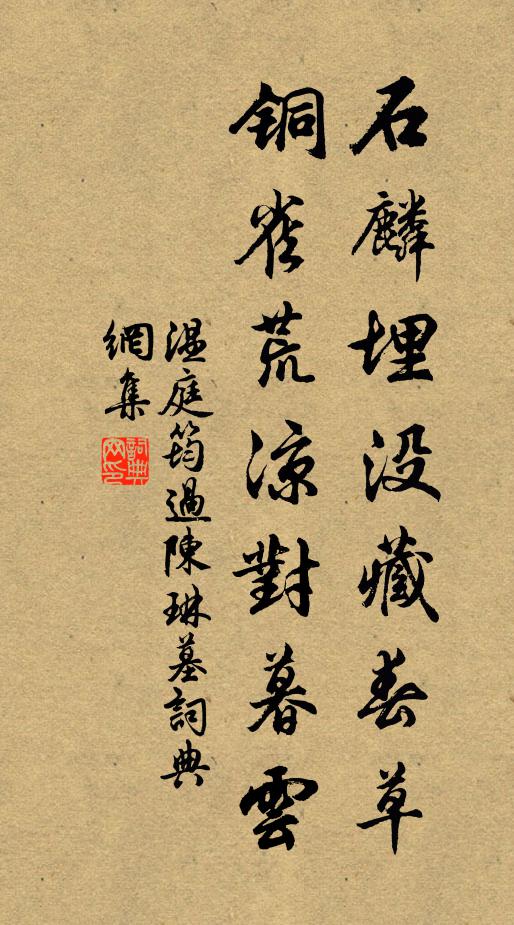 石麟埋没藏春草
铜雀荒凉對暮雲
温庭筠過陳琳墓詞典
網集
詞典網印